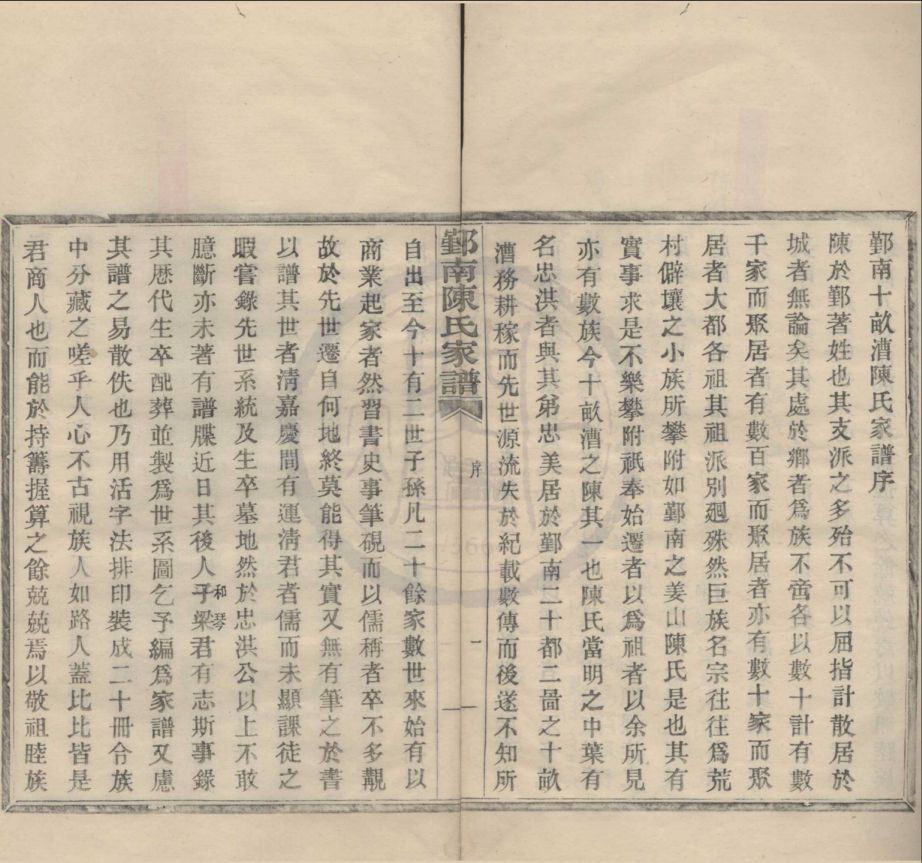 鄞南十畝漕陳氏家譜序
陳於鄞著姓也其支派之多殆不可以屈指計散居於
城者無論矣其處於鄉者爲族不啻各以數十計有數
千家而聚居者有數百家而聚居者亦有數十家而聚
居者大都各祖其祖派別迥殊然巨族名宗往往爲荒
村僻壤之小族所攀附如鄞南之姜山陳氏是也其有
實事求是不樂攀附祇奉始遷者以爲祖者以余所見
亦有數族今十畝漕之陳其一也陳氏當明之中葉有
名忠洪者與其弟忠美居於鄞南二十都二啚之十畝
漕務耕稼而先世源流失於紀載數傳而後遂不知所
鄞南陳氏家譜 序 一
自出至今十有二世子孫凡二十餘家數世來始有以
商業起家者然習書史事筆硯而以儒稱者卒不多覯
故於先世遷自何地終莫能得其實又無有筆之於書
以譜其世者清嘉慶間有運清君者儒而未顯課徒之
暇嘗錄先世系統及生卒墓地然於忠洪公以上不敢
臆斷亦未著有譜牒近日其後人子梁和琴君有志斯事錄
其歷代生卒配葬並製爲世系圖乞予編爲家譜又慮
其譜之易散佚也乃用活字法排印裝成二十冊令族
中分藏之嗟乎人心不古視族人如路人蓋比比皆是
君商人也而能於持籌握算之餘兢兢焉以敬祖睦族